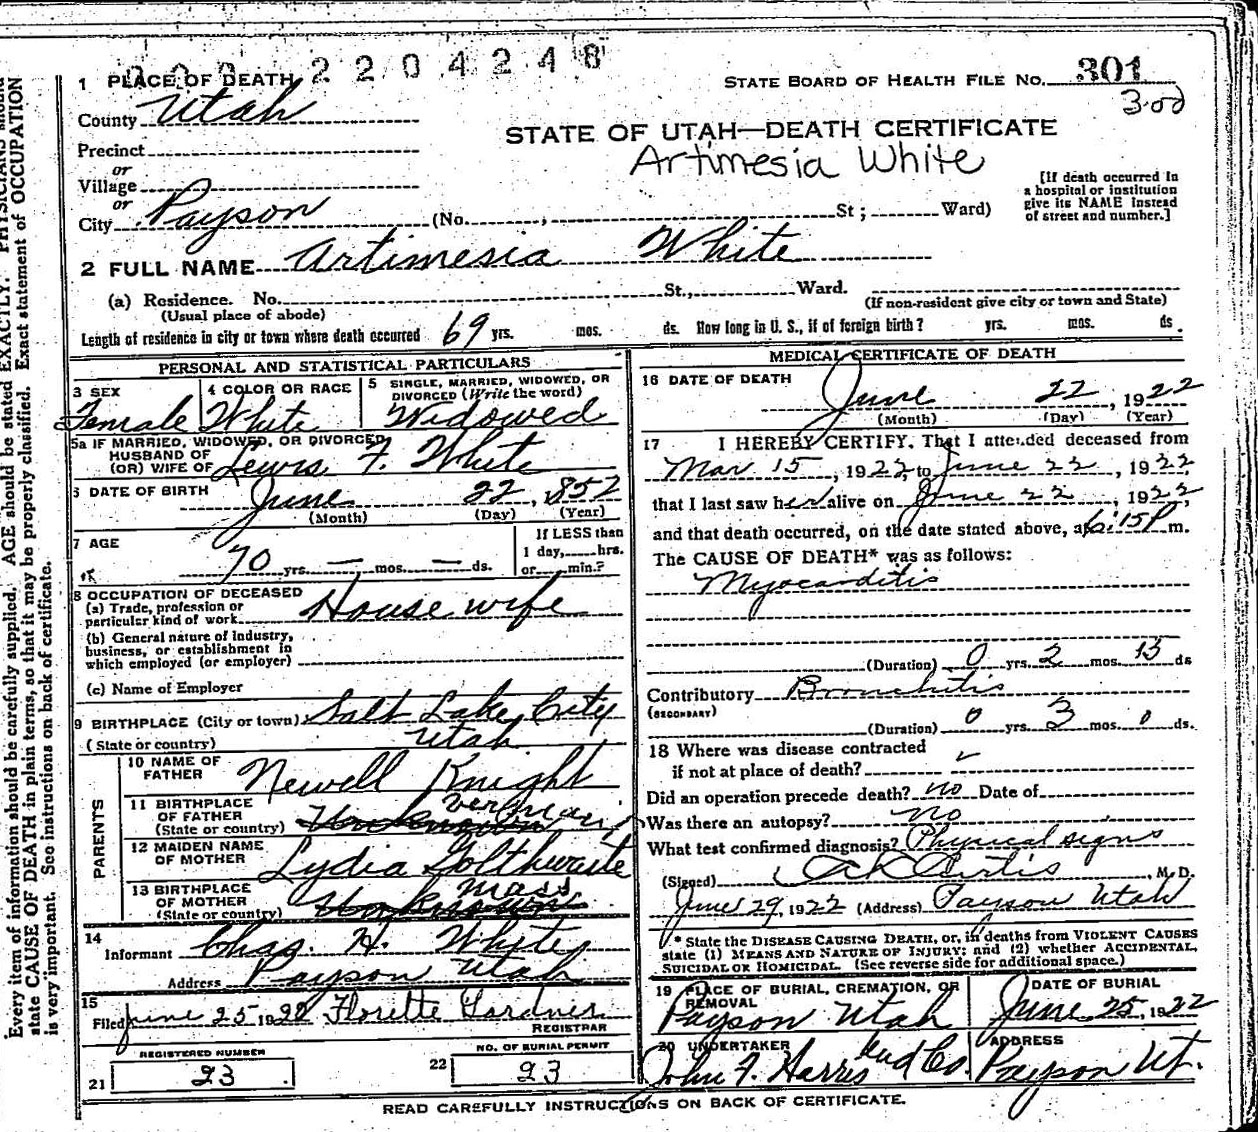 2204248
1 PLACE OF DEATH
STATE BOARD OF HEALTH FILE NO. 301
300
County Utah
STATE OF UTAH—DEATH CERTIFICATE
Artimesia White
Precinct
or
Village
or
City Payson (No. , St ; Ward)
[If death occurred in
a hospital or institution
give its NAME instead
of street and number.]
2 FULL NAME Artimesia White
(a) Residence. No. St., Ward.
(Usual place of abode)
(If non-resident give city or town and State)
Length of residence in city or town where death occurred 69 yrs. mos. ds. How long in U. S., if of foreign birth? yrs. mos. ds.
PERSONAL AND STATISTICAL PARTICULARS
3 SEX
Female
4 COLOR OR RACE
White
5 SINGLE, MARRIED, WIDOWED, OR
DIVORCED (Write the word)
Widowed
5a IF MARRIED, WIDOWED, OR DIVORCED
HUSBAND OF
(OR) WIFE OF Lewis F. White
6 DATE OF BIRTH June 22, 1852
(Month) (Day) (Year)
7 AGE
70 yrs. — mos. — ds.
If LESS than
1 day, hrs.
or min.?
8 OCCUPATION OF DECEASED
(a) Trade, profession or
particular kind of work House wife
(b) General nature of industry,
business, or establishment in
which employed (or employer)
(c) Name of Employer
9 BIRTHPLACE (City or town) Salt Lake City
(State or country) Utah
PARENTS
10 NAME OF
FATHER Newell Knight
11 BIRTHPLACE
OF FATHER
(State or country)
12 MAIDEN NAME
OF MOTHER Lydia Golthwaite
13 BIRTHPLACE
OF MOTHER Mass
(State or country) Unknown
14
Informant Chas. H. White
Address Payson Utah
15
Filed June 25 1922 Florette Gardner
REGISTRAR
REGISTERED NUMBER
21 23
NO. OF BURIAL PERMIT
22 23
MEDICAL CERTIFICATE OF DEATH
16 DATE OF DEATH
June 22, 1922
(Month) (Day) (Year)
17 I HEREBY CERTIFY, That I attended deceased from
Mar 15, 1922, to June 22, 1922,
that I last saw her alive on June 22, 1922,
and that death occurred, on the date stated above, at 6:15P m.
The CAUSE OF DEATH* was as follows:
Myocarditis
(Duration) 0 yrs. 2 mos. 15 ds
Contributory Bronchitis
(SECONDARY)
(Duration) 0 yrs. 3 mos. 0 ds.
18 Where was disease contracted
if not at place of death?
Did an operation precede death? no Date of
Was there an autopsy? no
What test confirmed diagnosis? Physical signs
(Signed) Curtis, M. D.
June 29, 1922 (Address) Payson Utah
* State the DISEASE CAUSING DEATH, or, in deaths from VIOLENT CAUSES
state (1) MEANS AND NATURE OF INJURY; and (2) whether ACCIDENTAL,
SUICIDAL OR HOMICIDAL. (See reverse side for additional space.)
19 PLACE OF BURIAL, CREMATION, OR
REMOVAL
Payson Utah
DATE OF BURIAL
June 25, 1922
20 UNDERTAKER
John F. Harris and Co.
ADDRESS
Payson Ut.
READ CAREFULLY INSTRUCTIONS ON BACK OF CERTIFICATE.
Every item of information should be carefully supplied. AGE should be stated EXACTLY. PHYSICIANS should
state CAUSE OF DEATH in plain terms, so that it may be properly classified. Exact statement of OCCUPATION
is very important. See instructions on back of certificate.